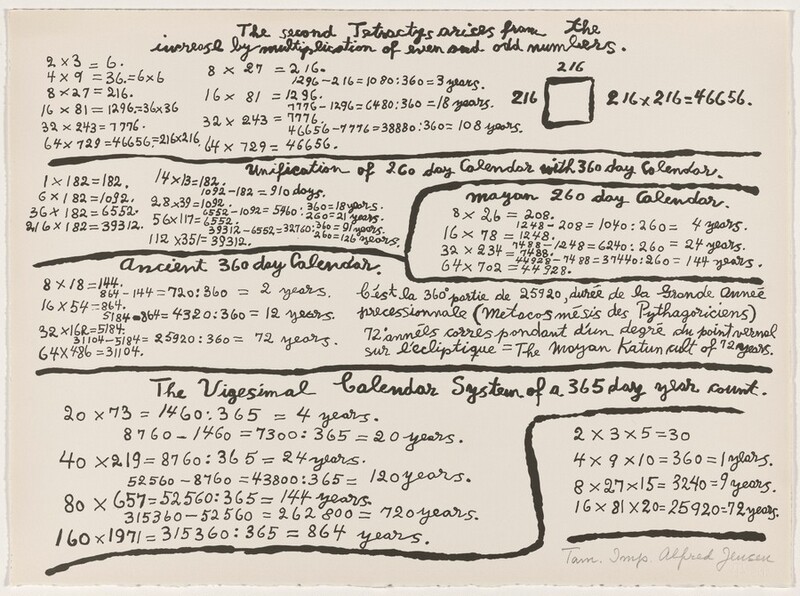 The second Tetractys arises from the
increase by multiplication of even and odd numbers.
2 × 3 = 6.
4 × 9 = 36. = 6×6
8 × 27 = 216.
16 × 81 = 1296. = 36×36
32 × 243 = 7776.
64 × 729 = 46656. = 216×216.
8 × 27 = 216.
1296 - 216 = 1080 : 360 = 3 years.
16 × 81 = 1296.
7776 - 1296 = 6480 : 360 = 18 years.
32 × 243 = 7776.
46656 - 7776 = 38880 : 360 = 108 years.
64 × 729 = 46656.
216
216
216 × 216 = 46656.
Unification of 260 day Calendar with 360 day Calendar.
1 × 182 = 182.
6 × 182 = 1092.
36 × 182 = 6552.
216 × 182 = 39312.
14 × 13 = 182.
1092 - 182 = 910 days.
28 × 39 = 1092.
6552 - 1092 = 5460 : 360 = 18 years.
260 = 21 years.
56 × 117 = 6552.
39312 - 6552 = 32760 : 360 = 91 years.
260 = 126 years.
112 × 351 = 39312.
Mayan 260 day Calendar.
8 × 26 = 208.
1248 - 208 = 1040 : 260 = 4 years.
16 × 78 = 1248.
7488 - 1248 = 6240 : 260 = 24 years.
32 × 234 = 7488.
44928 - 7488 = 37440 : 260 = 144 years.
64 × 702 = 44928.
Ancient 360 day Calendar.
8 × 18 = 144.
864 - 144 = 720 : 360 = 2 years.
16 × 54 = 864.
5184 - 864 = 4320 : 360 = 12 years.
32 × 162 = 5184.
31104 - 5184 = 25920 : 360 = 72 years.
64 × 486 = 31104.
C'est la 360e partie de 25920, durée de la Grande Année
precessionnale (Metacosmésis des Pythagoriciens)
72 années correspondant d'un degré du point vernal
sur l'écliptique = The Mayan Katun cult of 72 years.
The Vigesimal Calendar System of a 365 day year count.
20 × 73 = 1460 : 365 = 4 years.
8760 - 1460 = 7300 : 365 = 20 years.
40 × 219 = 8760 : 365 = 24 years.
52560 - 8760 = 43800 : 365 = 120 years.
80 × 657 = 52560 : 365 = 144 years.
315360 - 52560 = 262800 = 720 years.
160 × 1971 = 315360 : 365 = 864 years.
2 × 3 × 5 = 30
4 × 9 × 10 = 360 = 1 years.
8 × 27 × 15 = 3240 = 9 years.
16 × 81 × 20 = 25920 = 72 years.
Tam. Imp. Alfred Jensen